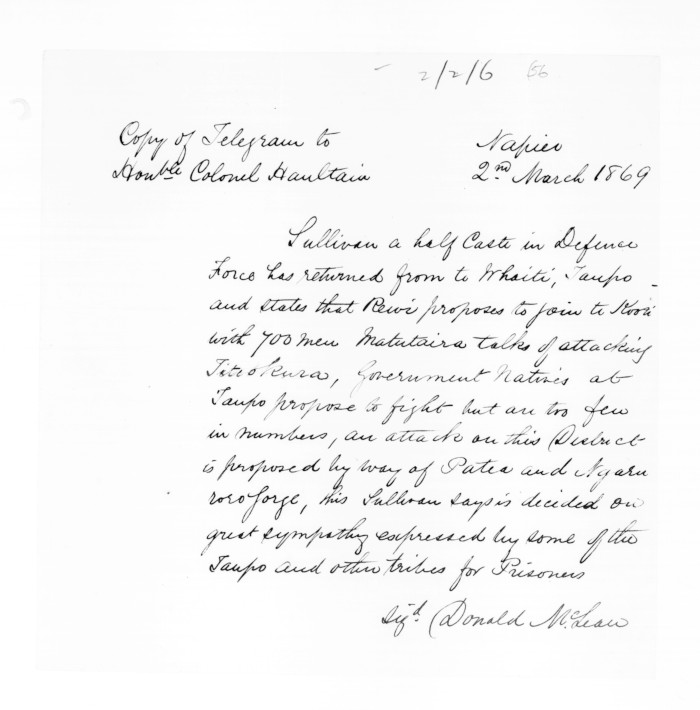 2/2/6 56
Copy of Telegram to
Honble Colonel Haultain
Napier
2nd March 1869
Sullivan a half Caste in Defence
Force has returned from te Whaiti, Taupo -
and states that Rewi proposes to join te Kooti
with 700 men Matutaira talks of attacking
Titiokura, Government Natives at
Taupo propose to fight but are too few
in numbers, an attack on this District
is proposed by way of Patea and Ngaru
roro forge, this Sullivan says is decided on
great sympathy expressed by some of the
Taupo and other tribes for Prisoners
sigd. (Donald McLean